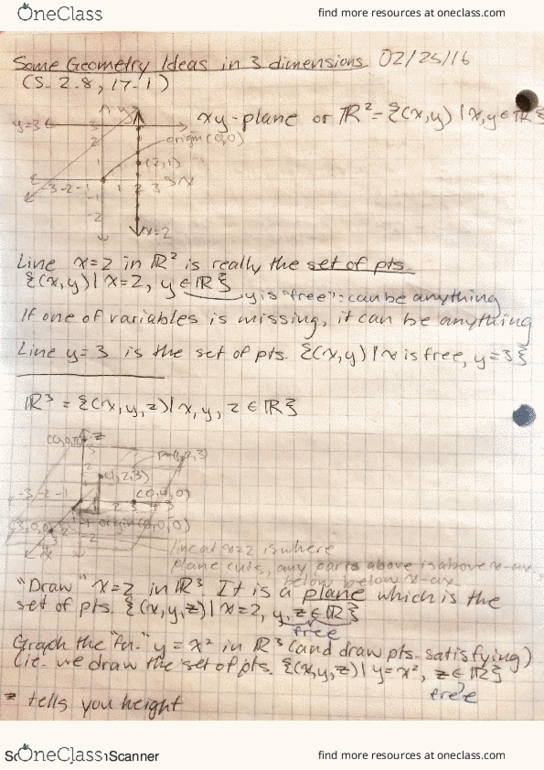 OneClass
find more resources at oneclass.com
Some Geometry Ideas in 3 dimensions 02/25/16
(S. 2.8, 17.1)
xy-plane or ℝ² = {(x,y) | x,y ∈ ℝ}
y=3
origin (0,0)
(2,1)
-3 -2 -1 1 2 3
x=2
Line x=2 in ℝ² is really the set of pts.
{(x,y) | x=2, y ∈ ℝ}
y is "free": can be anything
If one of variables is missing, it can be anything
Line y=3 is the set of pts. {(x,y) | x is free, y=3}
ℝ³ = {(x,y,z) | x,y,z ∈ ℝ}
z
(1,2,3)
-3 -2 -1
(0,4,0)
origin (0,0,0)
line at x=2 is where
plane cuts, any parts above is above x-ax,
below below x-ax.
"Draw" x=2 in ℝ³. It is a plane which is the
set of pts. {(x,y,z) | x=2, y,z ∈ ℝ}
free
Graph the "fn." y=x² in ℝ³ (and draw pts. satisfying)
(i.e. we draw the set of pts. {(x,y,z) | y=x², z ∈ ℝ}
free
z tells you height
OneClass
Scanner
find more resources at oneclass.com